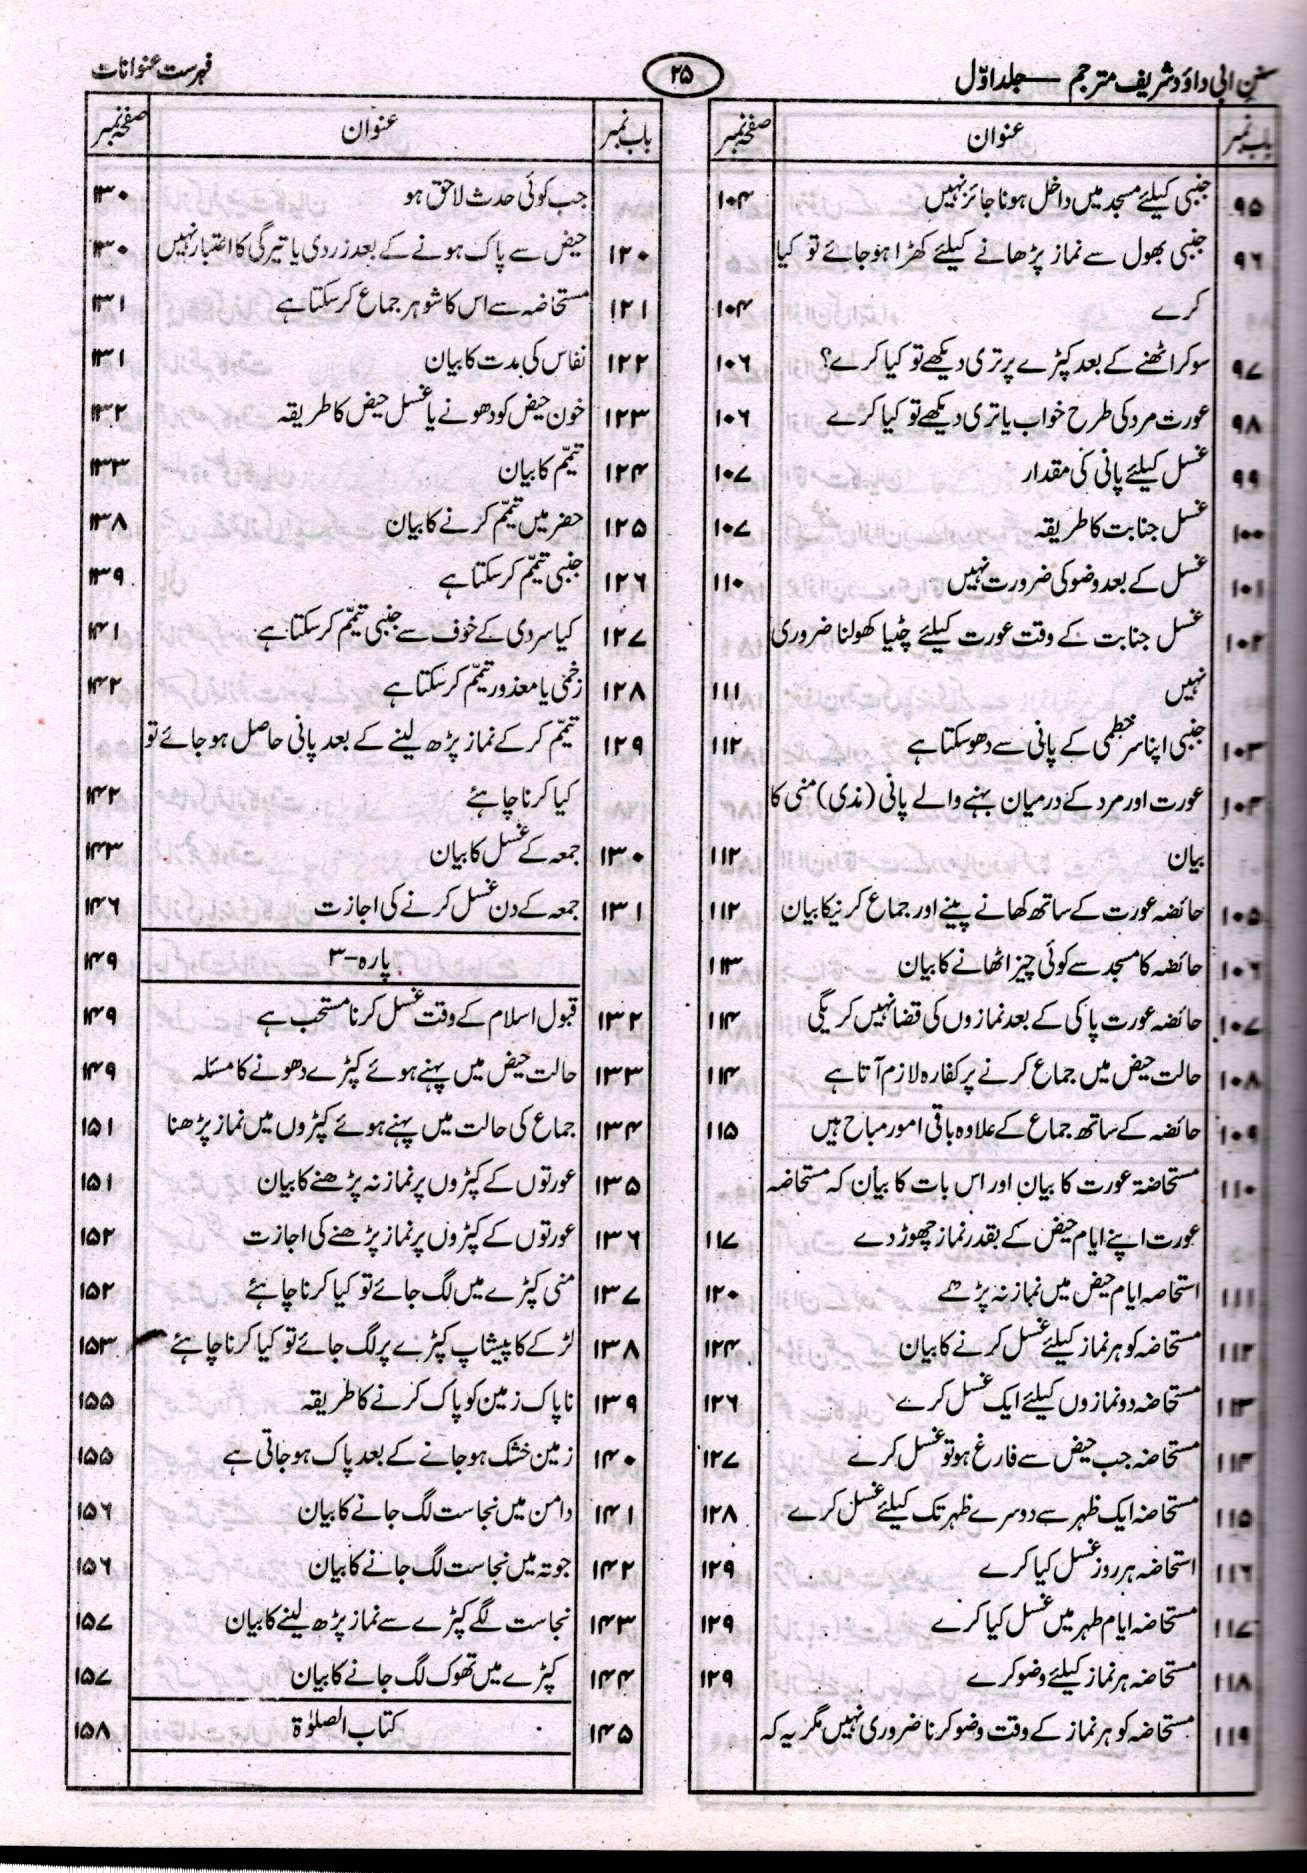 سنن ابی داؤد شریف مترجم — جلد اوّل
۲۵
فہرست عنوانات
باب نمبر عنوان صفحہ نمبر
۹۵ جنبی کیلئے مسجد میں داخل ہونا جائز نہیں ۱۰۴
۹۶ جنبی بھول سے نماز پڑھانے کیلئے کھڑا ہو جائے تو کیا
کرے ۱۰۴
۹۷ سو کر اٹھنے کے بعد کپڑے پر تری دیکھے تو کیا کرے؟ ۱۰۶
۹۸ عورت مرد کی طرح خواب یا تری دیکھے تو کیا کرے ۱۰۶
۹۹ غسل کیلئے پانی کی مقدار ۱۰۷
۱۰۰ غسل جنابت کا طریقہ ۱۰۷
۱۰۱ غسل کے بعد وضو کی ضرورت نہیں ۱۱۰
۱۰۲ غسل جنابت کے وقت عورت کیلئے چٹیا کھولنا ضروری
نہیں ۱۱۱
۱۰۳ جنبی اپنا سر خطمی کے پانی سے دھو سکتا ہے ۱۱۲
۱۰۴ عورت اور مرد کے درمیان بہنے والے پانی (مذی) منی کا
بیان ۱۱۲
۱۰۵ حائضہ عورت کے ساتھ کھانے پینے اور جماع کرنیکا بیان ۱۱۲
۱۰۶ حائضہ کا مسجد سے کوئی چیز اٹھانے کا بیان ۱۱۳
۱۰۷ حائضہ عورت پاکی کے بعد نمازوں کی قضا نہیں کریگی ۱۱۴
۱۰۸ حالت حیض میں جماع کرنے پر کفارہ لازم آتا ہے ۱۱۴
۱۰۹ حائضہ کے ساتھ جماع کے علاوہ باقی امور مباح ہیں ۱۱۵
۱۱۰ مستحاضۃ عورت کا بیان اور اس بات کا بیان کہ مستحاضہ
عورت اپنے ایام حیض کے بقدر نماز چھوڑ دے ۱۱۷
۱۱۱ استحاصہ ایام حیض میں نماز نہ پڑھے ۱۲۰
۱۱۲ مستحاضہ کو ہر نماز کیلئے غسل کرنے کا بیان ۱۲۴
۱۱۳ مستحاضہ دو نمازوں کیلئے ایک غسل کرے ۱۲۶
۱۱۴ مستحاضہ جب حیض سے فارغ ہو تو غسل کرے ۱۲۷
۱۱۵ مستحاضہ ایک ظہر سے دوسرے ظہر تک کیلئے غسل کرے ۱۲۸
۱۱۶ استحاضہ ہر روز غسل کیا کرے ۱۲۹
۱۱۷ مستحاضہ ایام طہر میں غسل کیا کرے ۱۲۹
۱۱۸ مستحاضہ ہر نماز کیلئے وضو کرے ۱۲۹
۱۱۹ مستحاضہ کو ہر نماز کے وقت وضو کرنا ضروری نہیں مگر یہ کہ
باب نمبر عنوان صفحہ نمبر
جب کوئی حدث لاحق ہو ۱۳۰
۱۲۰ حیض سے پاک ہونے کے بعد زردی یا تیرگی کا اعتبار نہیں ۱۳۰
۱۲۱ مستحاضہ سے اس کا شوہر جماع کر سکتا ہے ۱۳۱
۱۲۲ نفاس کی مدت کا بیان ۱۳۱
۱۲۳ خون حیض کو دھونے یا غسل حیض کا طریقہ ۱۳۲
۱۲۴ تیمّم کا بیان ۱۳۳
۱۲۵ حضر میں تیمّم کرنے کا بیان ۱۳۸
۱۲۶ جنبی تیمّم کر سکتا ہے ۱۳۹
۱۲۷ کیا سردی کے خوف سے جنبی تیمّم کر سکتا ہے ۱۴۱
۱۲۸ زخمی یا معذور تیمّم کر سکتا ہے ۱۴۲
۱۲۹ تیمّم کر کے نماز پڑھ لینے کے بعد پانی حاصل ہو جائے تو
کیا کرنا چاہئے ۱۴۲
۱۳۰ جمعہ کے غسل کا بیان ۱۴۳
۱۳۱ جمعہ کے دن غسل کرنے کی اجازت ۱۴۶
پارہ-۳ ۱۴۹
۱۳۲ قبول اسلام کے وقت غسل کرنا مستحب ہے ۱۴۹
۱۳۳ حالت حیض میں پہنے ہوئے کپڑے دھونے کا مسئلہ ۱۴۹
۱۳۴ جماع کی حالت میں پہنے ہوئے کپڑوں میں نماز پڑھنا ۱۵۱
۱۳۵ عورتوں کے کپڑوں پر نماز نہ پڑھنے کا بیان ۱۵۱
۱۳۶ عورتوں کے کپڑوں پر نماز پڑھنے کی اجازت ۱۵۲
۱۳۷ منی کپڑے میں لگ جائے تو کیا کرنا چاہئے ۱۵۲
۱۳۸ لڑکے کا پیشاپ کپڑے پر لگ جائے تو کیا کرنا چاہئے ۱۵۳
۱۳۹ ناپاک زمین کو پاک کرنے کا طریقہ ۱۵۵
۱۴۰ زمین خشک ہو جانے کے بعد پاک ہو جاتی ہے ۱۵۵
۱۴۱ دامن میں نجاست لگ جانے کا بیان ۱۵۶
۱۴۲ جوتہ میں نجاست لگ جانے کا بیان ۱۵۶
۱۴۳ نجاست لگے کپڑے سے نماز پڑھ لینے کا بیان ۱۵۷
۱۴۴ کپڑے میں تھوک لگ جانے کا بیان ۱۵۷
۱۴۵ کتاب الصلوٰۃ ۱۵۸